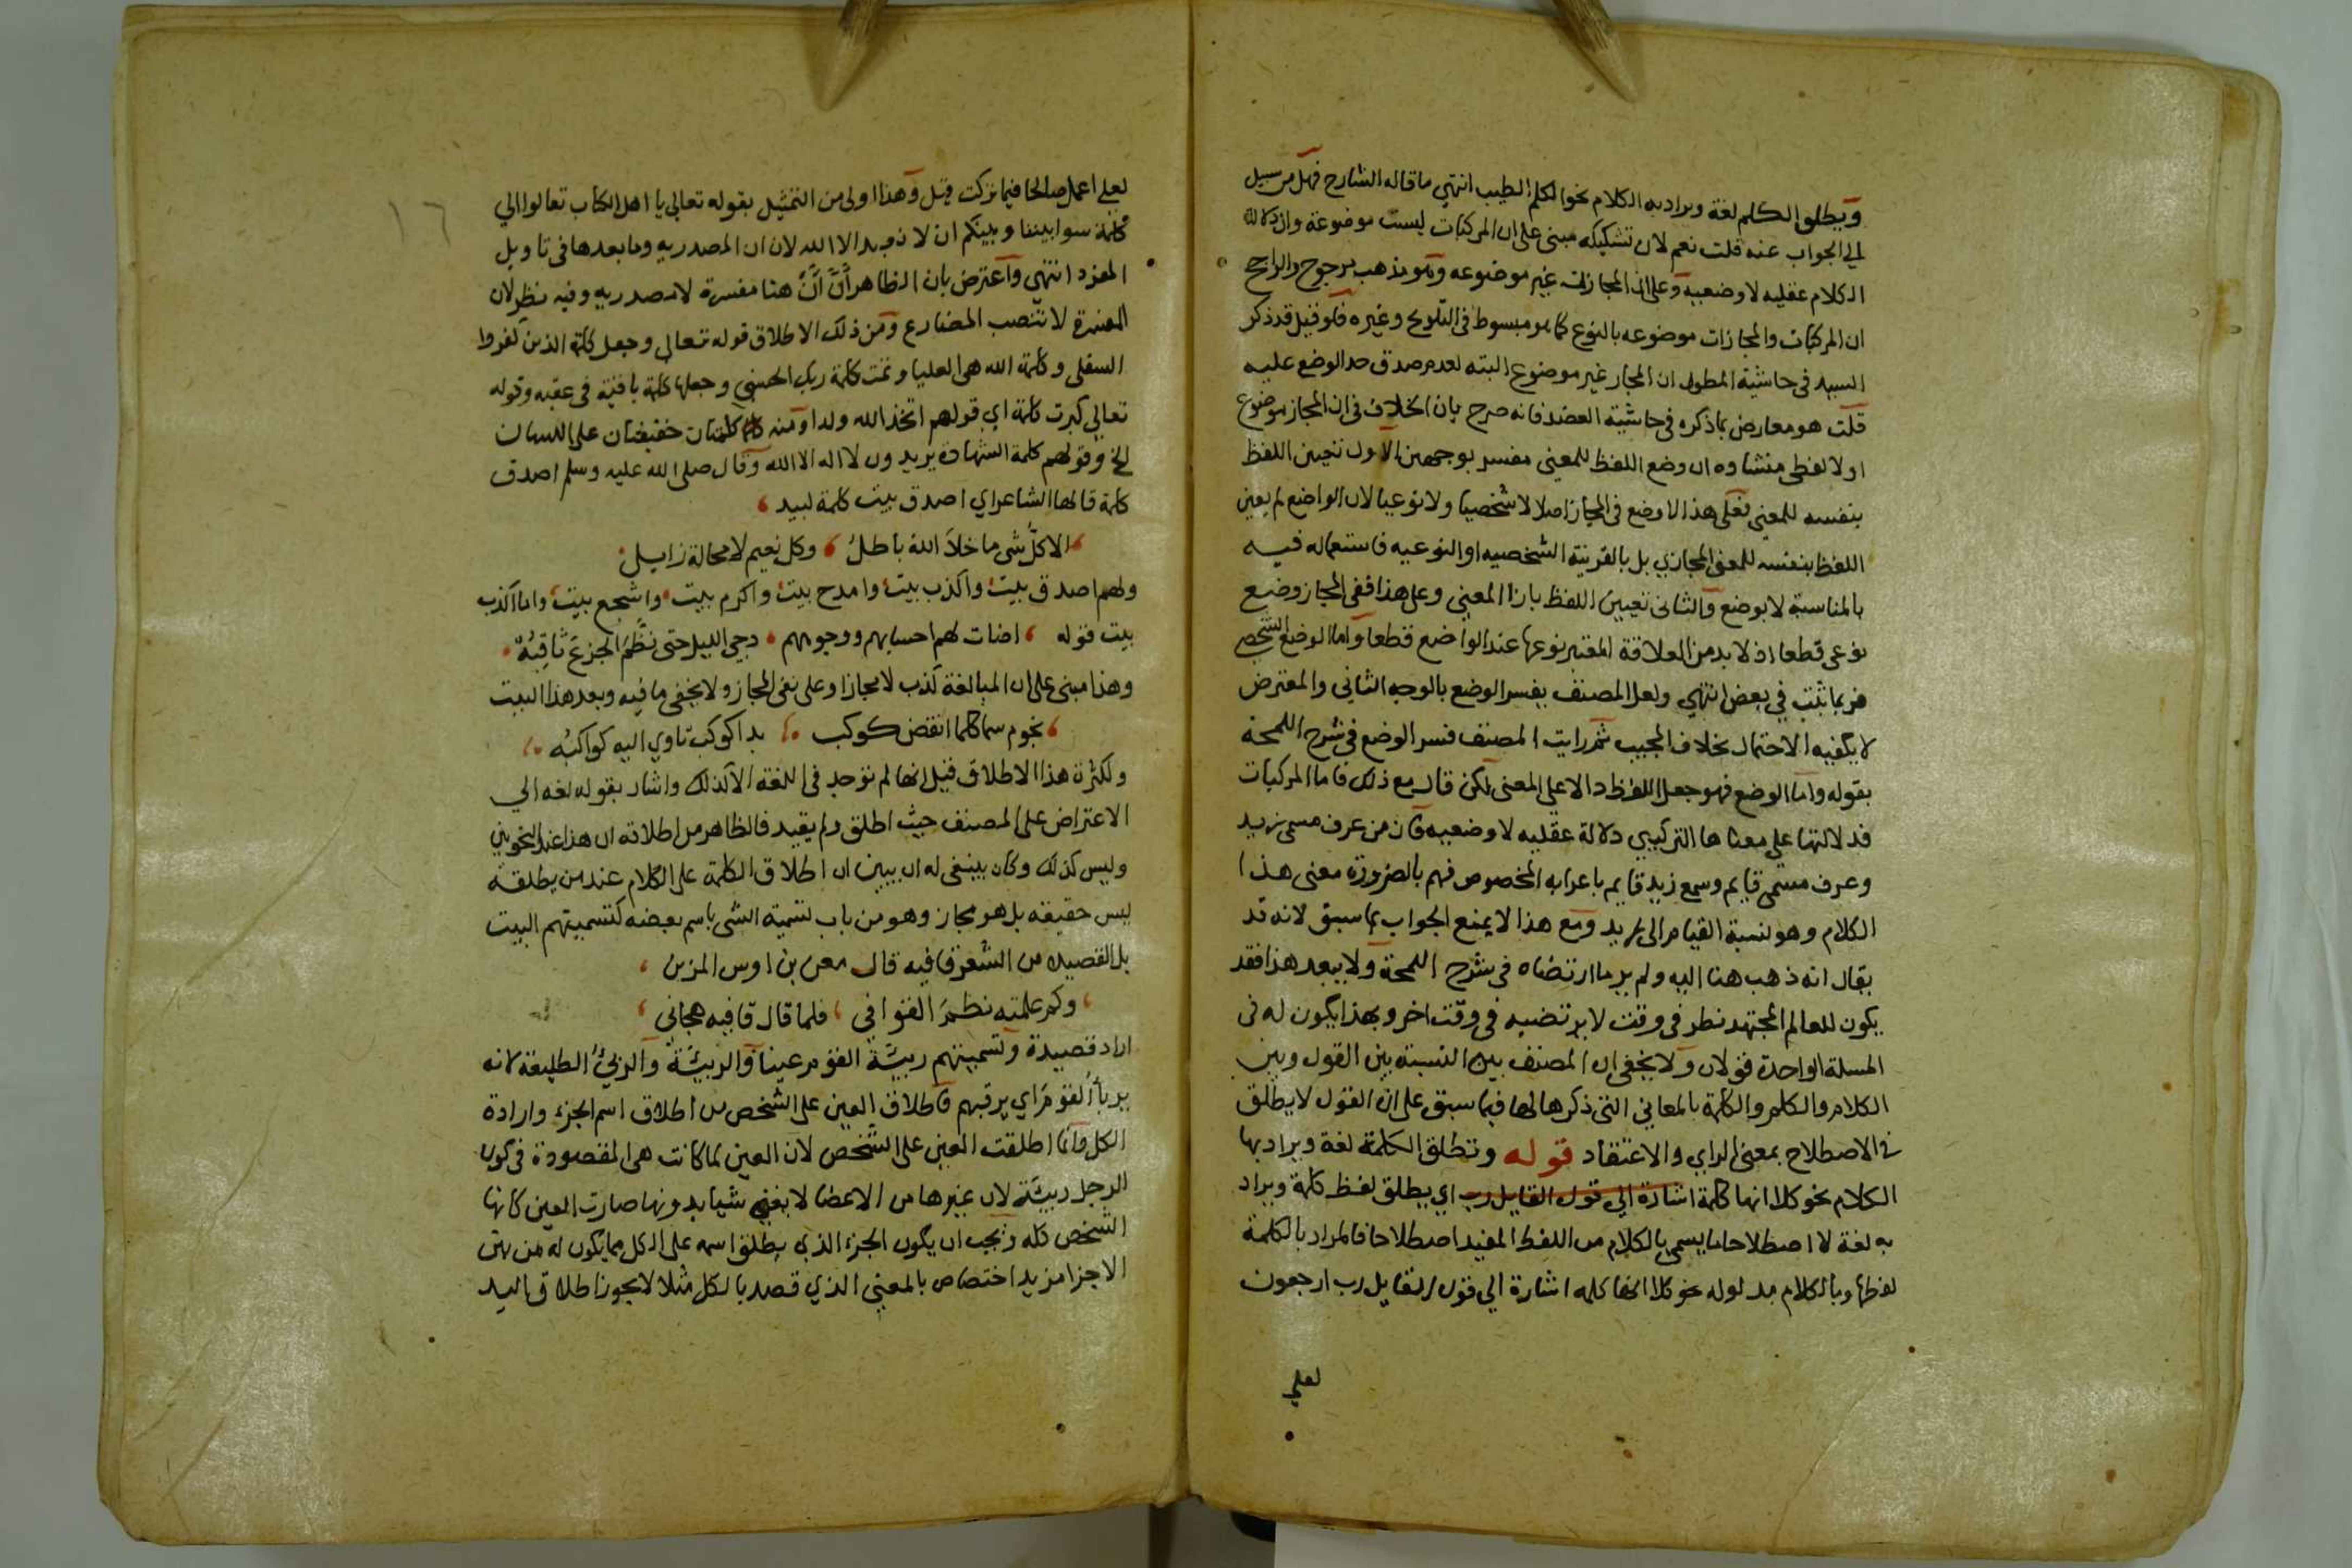 ويطلق الكلم لغة ويراد به الكلام نحو الكلم الطيب انتهي ما قاله الشارح فهل من سبيل
الي الجواب عنه قلت نعم لان تشكيكه مبنى على ان المركبات ليست موضوعة وان دلالة
الكلام عقليه لا وضعيه وعلى ان المجازات غير موضوعه وهو مذهب مرجوح والراجح
ان المركبات والمجازات موضوعه بالنوع كما هو مبسوط في التلويح وغيره فلو قيل قد ذكر
السيد في حاشية المطول ان المجاز غير موضوع البته لعدم صدق حد الوضع عليه
قلت هو معارض بما ذكره في حاشية العضد فانه صرح بان الخلاف في ان المجاز موضوع
او لا لفظي منشاوه ان وضع اللفظ للمعني مفسر بوجهين الاول تعيين اللفظ
بنفسه للمعني فعلى هذا لا وضع في المجاز اصلا لا شخصيا ولا نوعيا لان الواضع لم يعين
اللفظ بنفسه للمعنى المجازي بل بالقرينة الشخصيه او النوعيه فاستعماله فيه
بالمناسبة لا بوضع والثاني تعيين اللفظ بازا المعني وعلى هذا ففي المجاز وضع
نوعي قطعا اذ لا بد من العلاقة المعتبر نوعها عند الواضع قطعا واما الوضع الشخصي
فربما ثبت في بعض انتهي ولعل المصنف يفسر الوضع بالوجه الثاني والمعترض
لا يكفيه الاحتمال بخلاف المجيب ثم رايت المصنف فسر الوضع في شرح اللمحة
بقوله واما الوضع فهو جعل اللفظ دالا على المعنى لكن قال مع ذلك فاما المركبات
فدلالتها علي معناها التركيبي دلالة عقليه لا وضعيه فان من عرف مسمى زيد
وعرف مسمى قايم وسمع زيد قايم باعرابه المخصوص فهم بالضرورة معنى هذا
الكلام وهو نسبة القيام الى زيد ومع هذا لا يمنع الجواب بما سبق لانه قد
يقال انه ذهب هنا اليه ولم ير ما ارتضاه في شرح اللمحة ولا يبعد هذا فقد
يكون للعالم المجتهد نظر في وقت لا يرتضيه في وقت اخر وبهذا يكون له في
المسلة الواحدة قولان ولا يخفى ان المصنف بين النسبة بين القول وبين
الكلام والكلم والكلمة بالمعاني التي ذكرها لها فيما سبق على ان القول لا يطلق
في الاصطلاح بمعنى الراي والاعتقاد قوله وتطلق الكلمة لغة ويراد بها
الكلام نحو كلا انها كلمة اشارة الي قول القايل رب اي يطلق لفظ كلمة ويراد
به لغة لا اصطلاحا ما يسمي بالكلام من اللفظ المفيد اصطلاحا فالمراد بالكلمة
لفظها وبالكلام مدلوله نحو كلا انها كلمه اشارة الي قول القايل رب ارجعون
لعلي
١٦
لعلي اعمل صالحا فيما تركت قيل وهذا اولى من التمثيل بقوله تعالى يا اهل الكتاب تعالوا الي
كلمة سوا بيننا وبينكم ان لا نعبد الا الله لان ان المصدريه وما بعدها في تاويل
المفرد انتهي واعترض بان الظاهر أن أن هنا مفسرة لا مصدريه وفيه نظر لان
المفسرة لا تنصب المضارع ومن ذلك الاطلاق قوله تعالى وجعل كلمة الذين كفروا
السفلى وكلمة الله هى العليا وتمت كلمة ربك الحسني وجعلها كلمة باقية في عقبه وقوله
تعالي كبرت كلمة اي قولهم اتخذ الله ولدا ومنه كلمتان خفيفتان على اللسان
الخ وقولهم كلمة الشهادة يريدون لا اله الا الله وقال صلى الله عليه وسلم اصدق
كلمة قالها الشاعر اي اصدق بيت كلمة لبيد
الا كل شى ما خلا الله باطل وكل نعيم لا محالة زايل
ولهم اصدق بيت واكذب بيت وامدح بيت واكرم بيت واشجع بيت واما اكذب
بيت قوله اضات لهم احسابهم ووجوههم دجي الليل حتى نظم الجزع ثاقبه
وهذا مبنى على ان المبالغة كذب لا مجازا وعلى نفى المجاز ولا يخفى ما فيه وبعد هذا البيت
نجوم سما كلما انقض كوكب بدا كوكب تاوي اليه كواكبه
ولكثرة هذا الاطلاق قيل انها لم توجد في اللغة الا لذلك واشار بقوله لغه الي
الاعتراض على المصنف حيث اطلق ولم يقيد فالظاهر من اطلاقه ان هذا عند النحويين
وليس كذلك وكان ينبغى له ان يبين ان اطلاق الكلمة على الكلام عند من يطلقه
ليس حقيقه بل هو مجاز وهو من باب تسمية الشى باسم بعضه كتسميتهم البيت
بل القصيده من الشعر قافيه قال معن بن اوس المزني
وكم علمته نظم القوافي فلما قال قافيه هجاني
اراد قصيدة وتسميتهم ربيئة القوم عينا والربيئة والربئ الطليعة لانه
يربأ القوم اي يرقبهم فاطلاق العين على الشخص من اطلاق اسم الجزء وارادة
الكل وانما اطلقت العين على الشخص لان العين لما كانت هى المقصودة في كون
الرجل ربيئة لان غيرها من الاعضا لا يغني شيا بدونها صارت العين كانها
الشخص كله ويجب ان يكون الجزء الذي يطلق اسمه على الكل مما يكون له من بين
الاجزا مزيد اختصاص بالمعني الذي قصد بالكل مثلا لا يجوز اطلاق اليد